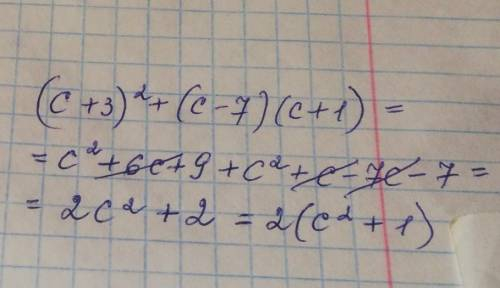 (c + 3)² + (c - 7)(c + 1) =
= c² + 6c + 9 + c² + c - 7c - 7 =
= 2c² + 2 = 2(c² + 1)